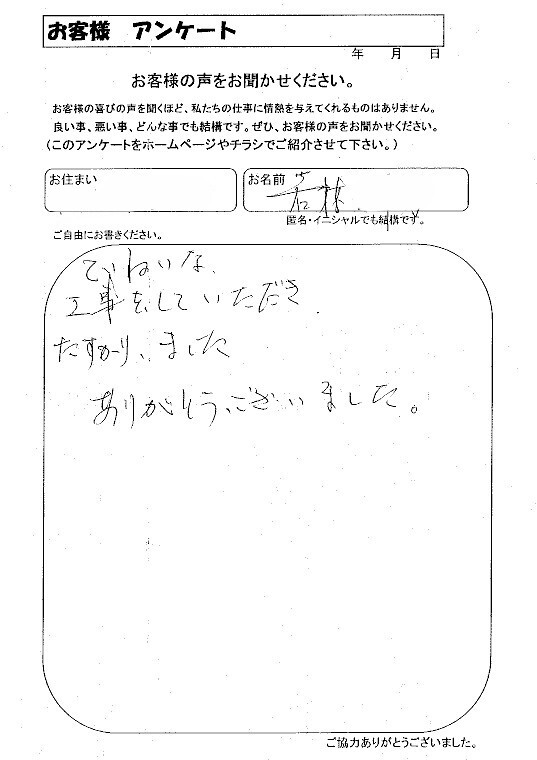 お客様 アンケート
年 月 日
お客様の声をお聞かせください。
お客様の喜びの声を聞くほど、私たちの仕事に情熱を与えてくれるものはありません。
良い事、悪い事、どんな事でも結構です。ぜひ、お客様の声をお聞かせください。
(このアンケートをホームページやチラシでご紹介させて下さい。)
お住まい
お名前 若林
匿名・イニシャルでも結構です。
ご自由にお書きください。
ていねいな、
工事をしていただき
たすかりました
ありがとうございました。
ご協力ありがとうございました。